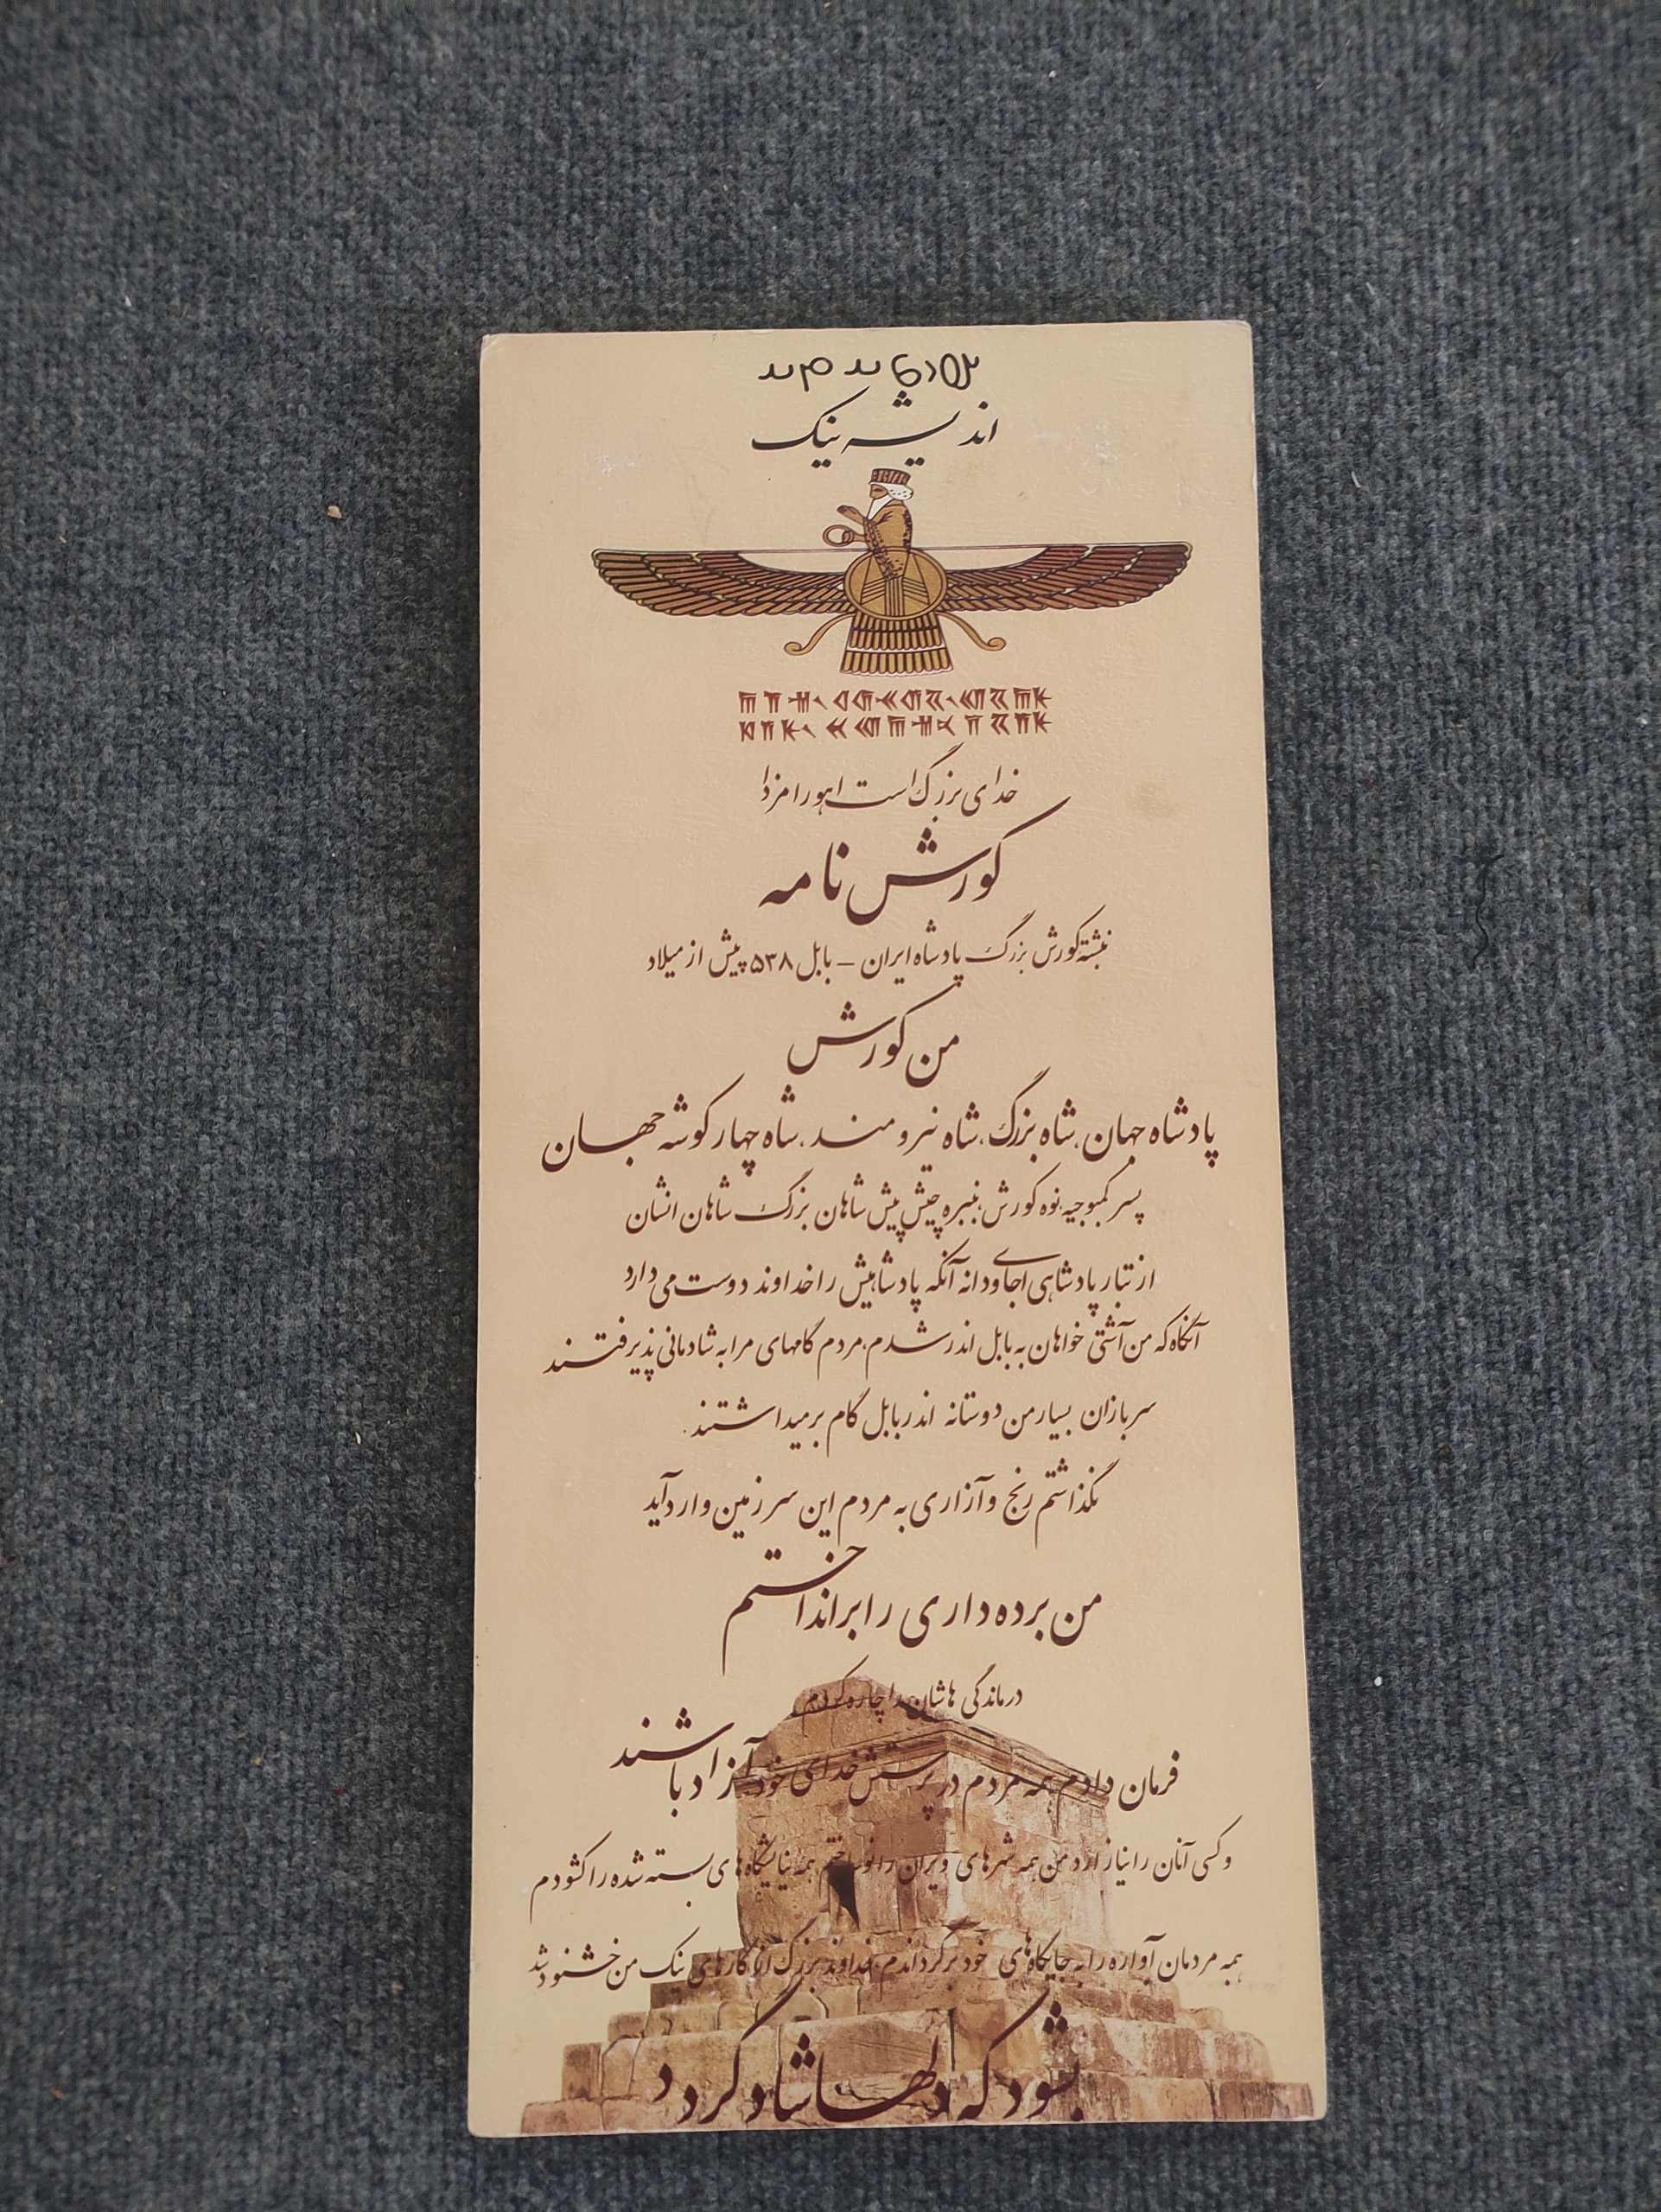 اندیشه نیک
خدای بزرگ است اهورامزدا
کورش نامه
نبشته کورش بزرگ پادشاه ایران – بابل ۵۳۸ پیش از میلاد
من کورش
پادشاه جهان، شاه بزرگ، شاه نیرومند، شاه چهار گوشه جهان
پسر کمبوجیه، نوه کورش، نبیره چیش پیش شاهان بزرگ شاهان انشان
از تبار پادشاهی ای جاودانه آنکه پادشاهیش را خداوند دوست می دارد
آنگاه که من آشتی خواهان به بابل اندر شدم، مردم گامهای مرا به شادمانی پذیرفتند
سربازان بسیار من دوستانه اندر بابل گام برمیداشتند.
نگذاشتم رنج و آزاری به مردم این سرزمین وارد آید
من برده داری را برانداختم
درماندگی هاشان را چاره کردم
فرمان دادم همه مردم در پرستش خدای خود آزاد باشند
و کسی آنان را نیازارد من همه شهرهای ویران را نو ساختم همه نیایشگاه های بسته شده را گشودم
همه مردمان آواره را به جایگاه های خود برگرداندم خداوند بزرگ از کارهای نیک من خشنود شد
بشود که دلها شاد گردد